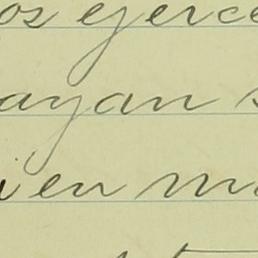 os ejerce
ayan s
ien m